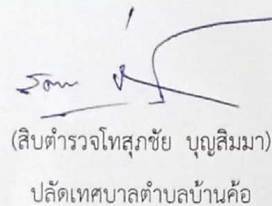 (สิบตำรวจโทสุภชัย บุญสิมมา)
ปลัดเทศบาลตำบลบ้านค้อ